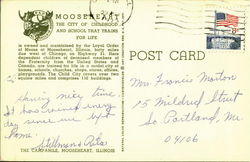 MOOSEHEART
THE CITY OF CHILDHOOD
AND SCHOOL THAT TRAINS
FOR LIFE
is owned and maintained by the Loyal Order
of Moose at Mooseheart, Illinois, forty miles
due west of Chicago, on Highway 31. Here
dependent children of deceased members of
the Fraternity from the United States and
Canada, are trained for life in a model city of
homes, schools, churches, shops, stores, offices,
playgrounds. The Child City covers over two
square miles and comprises 110 buildings.
Having nice time
since we left
home.
THE CAMPANILE, MOOSEHEART, ILLINOIS
POST CARD
Mrs Francis Morton
15 Mildred Street
So Portland, Me.
04106